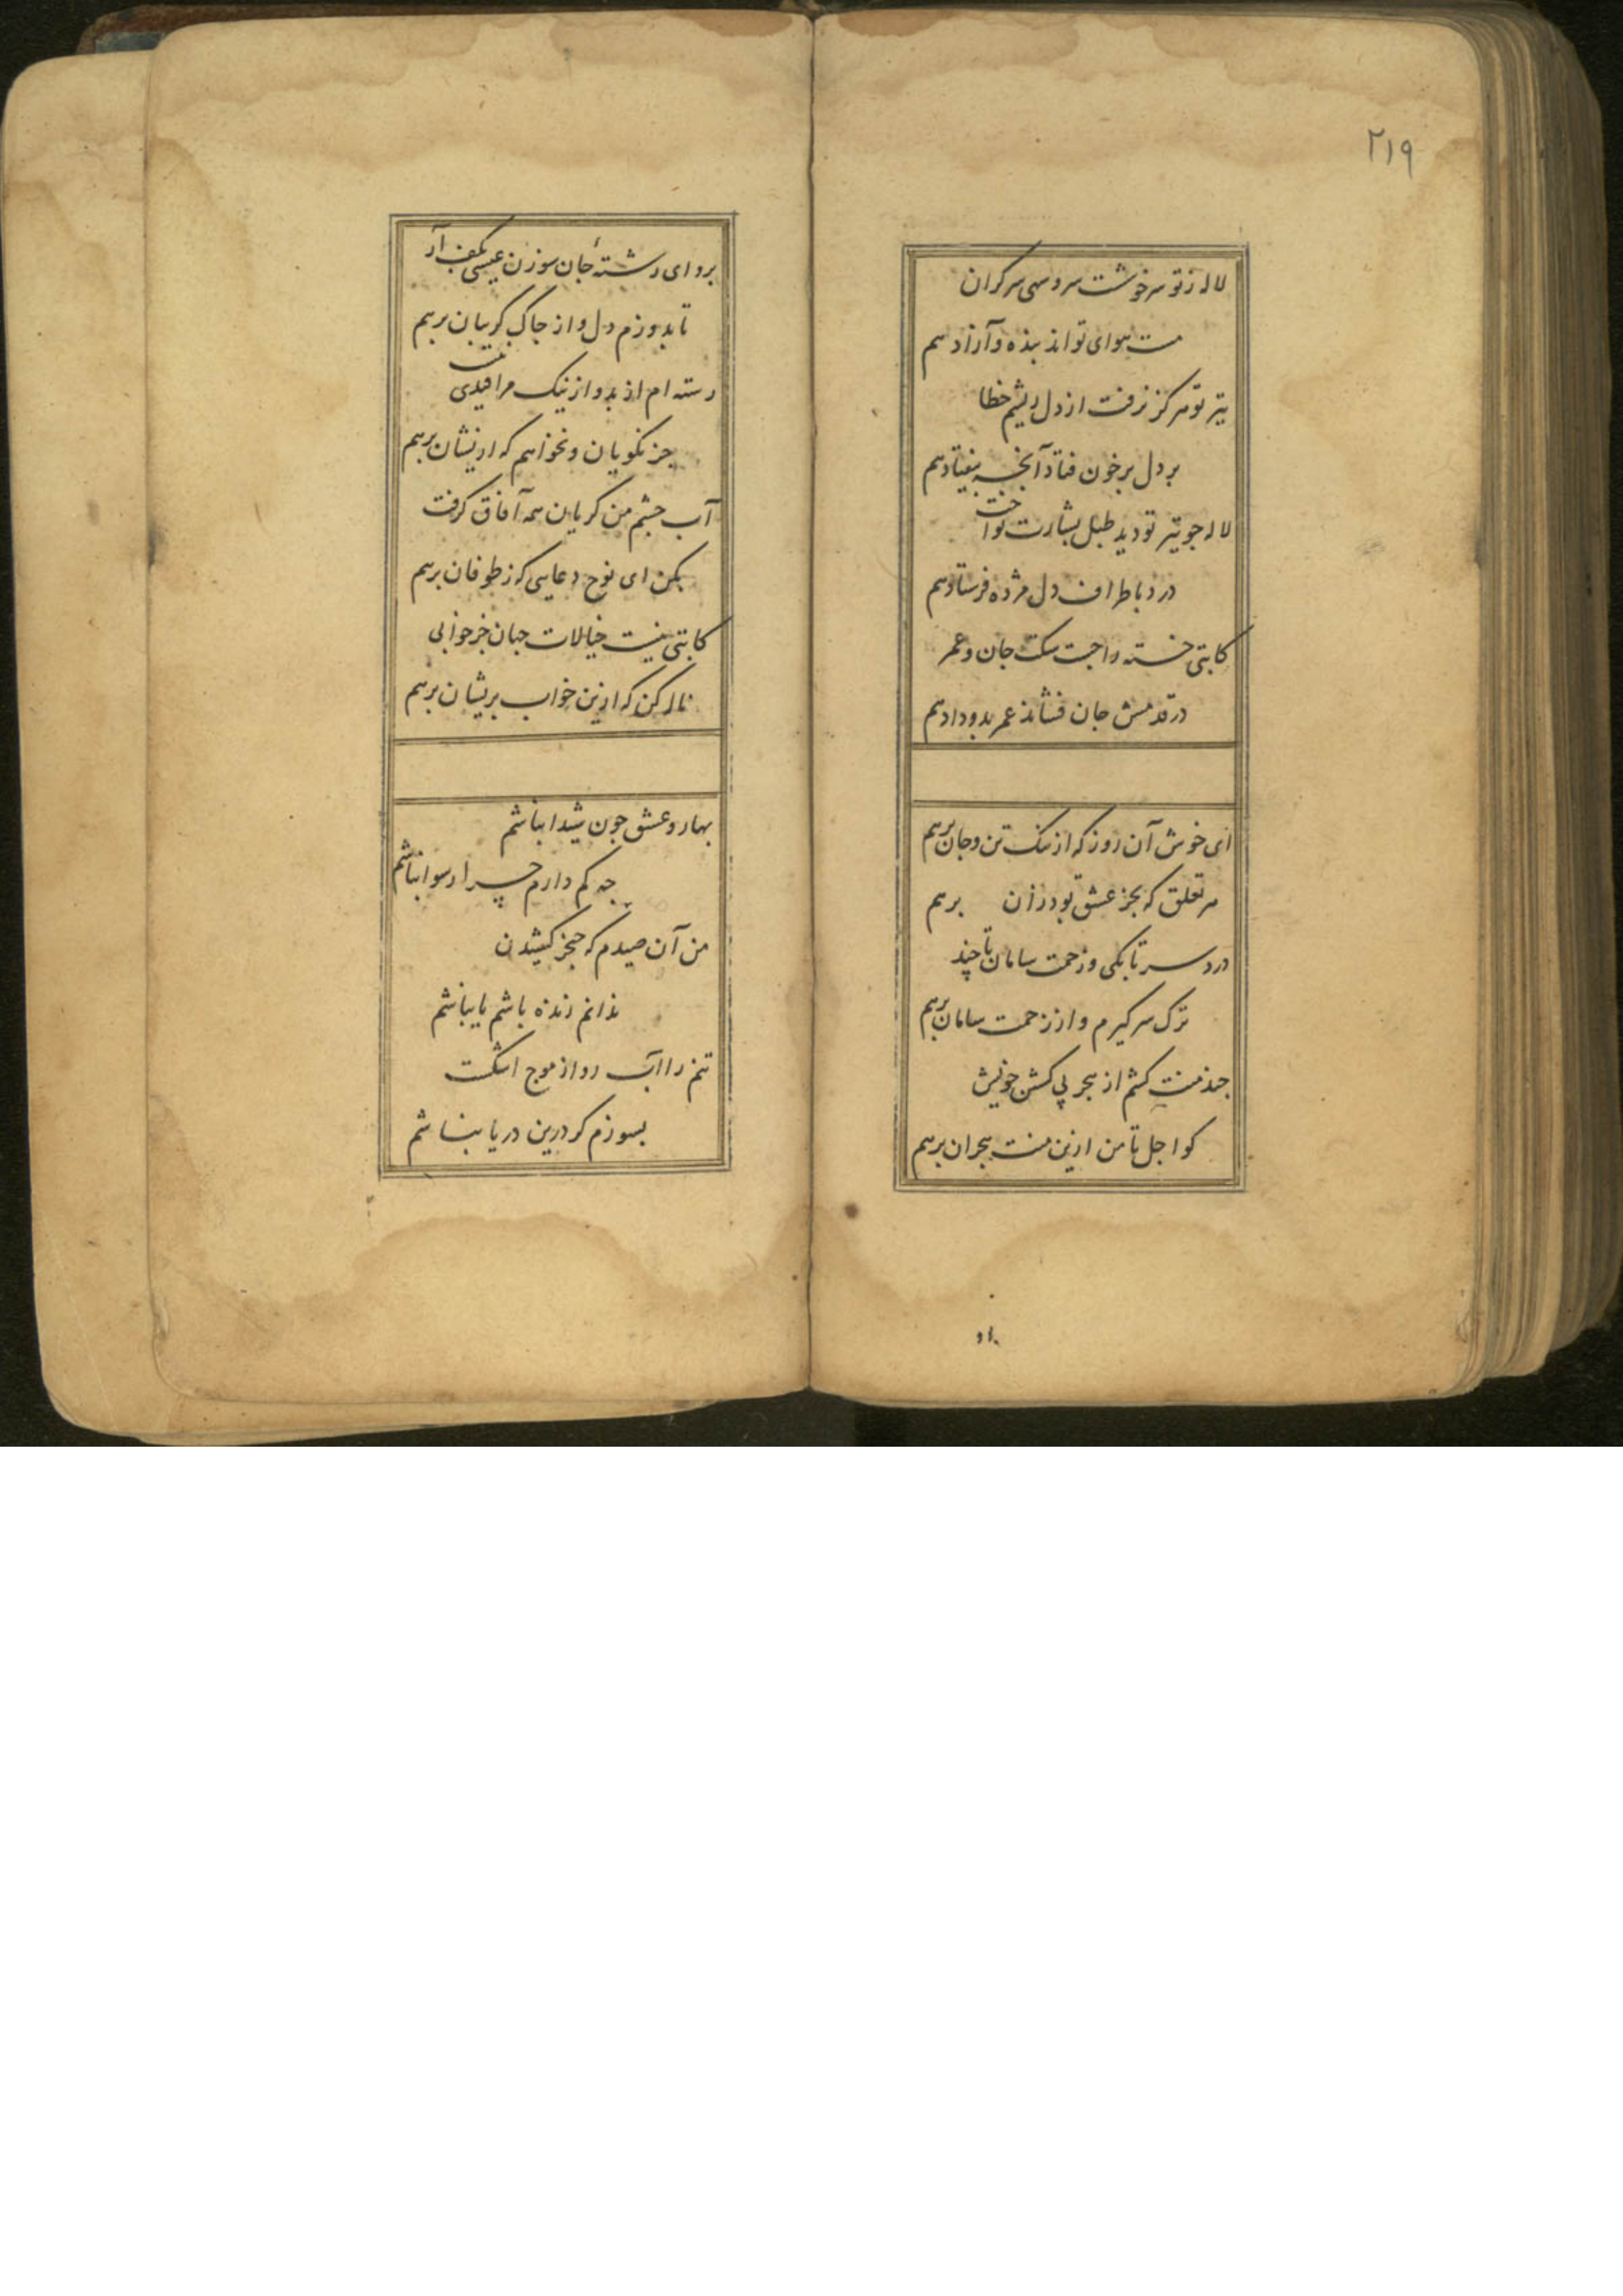 ۲۱۹
لاله ز تو سرخوشت سرو سهی سرکران
مست هوای تواند بنده و آزاد هم
تیر تو هرکز نرفت از دل ریشم خطا
بر دل برخون فتاد آنجه بیفتاد هم
لاله جو تیر تو دید طبل بشارت نواخت
درد باطراف دل مژده فرستاد هم
کاتبی خسته را جست سکت جان و عمر
در قدمش جان فشاند عمر بدو داد هم
ای خوش آن روز که از ننک تن و جان برهم
هر تعلق که بجز عشق تو دارم زان برهم
درد سر تا بکی و زحمت سامان تا چند
ترک سر کیرم و از زحمت سامان برهم
جند منت کشم از هجر پی کشتن خویش
کو اجل تا من ازین منت هجران برهم
برو ای رشتهٔ جان سوزن عیسی بکف آر
تا بدوزم دل و از جاک کریبان برهم
رسته ام از بد و از نیک مرا قیدی نیست
جز نکویان و نخواهم که ازیشان برهم
آب جشم من کریان همه آفاق کرفت
بکن ای نوح دعایی که ز طوفان برهم
کاتبی نیست خیالات جهان جز خوابی
ناله کن که ازین خواب بریشان برهم
بهار و عشق جون شیدا نباشم
جه کم دارم چرا رسوا نباشم
من آن صیدم که خنجر کشیدن
ندانم زنده باشم یا نباشم
تنم را آب رو از موج اشکست
بسوزم کر درین دریا نباشم